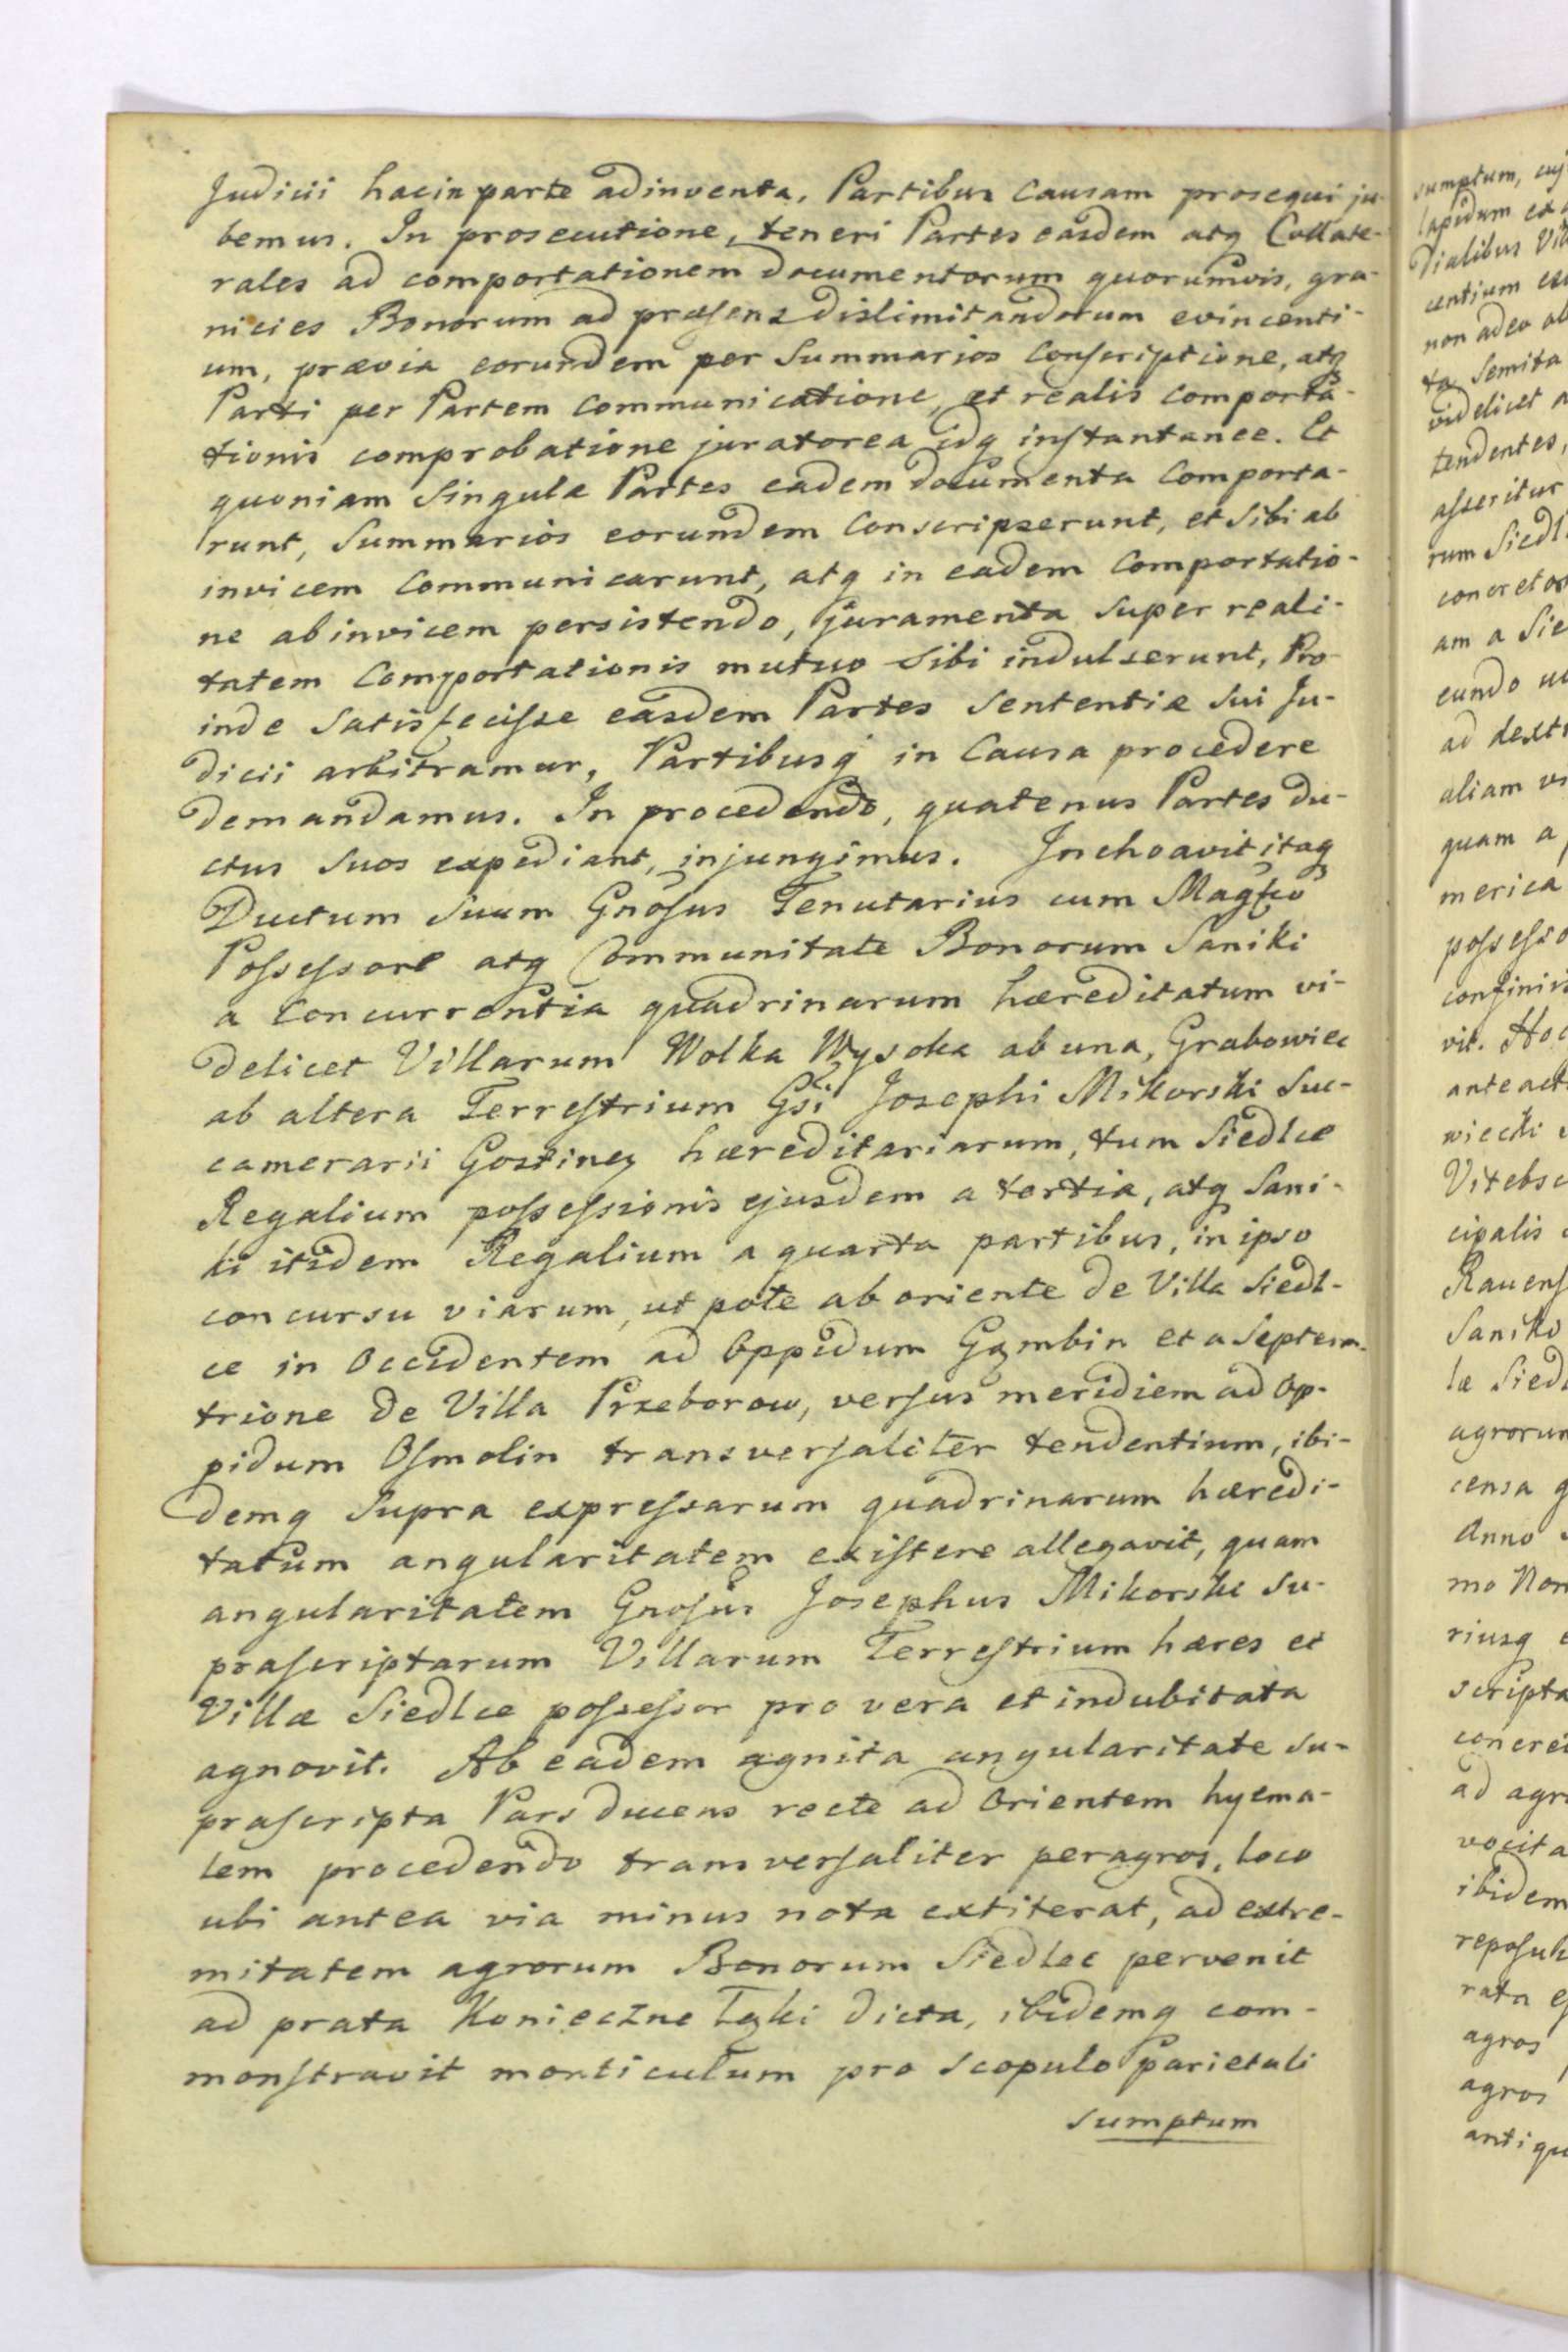 Judicii hacin parte adinventa, Partibus Causam prosequi ju-
bemus. In prosecutione, teneri Partes easdem atq Collate-
rales ad comportationem documentorum quorumvis, gra-
nicies Bonorum ad præsens dislimitandorum evincenti-
um, prævia eorundem per Summarios Conscriptione, atq
Parti per Partem Communicatione, et realis Comporta-
tionis comprobatione juratorea idq instantanee. Et
quoniam Singulæ Partes eadem documenta Comporta-
runt, Summarios eorumdem Conscripserunt, et Sibi ab
invicem Communicarunt, atq in eadem Comportatio-
ne abinvicem persistendo, juramenta Super reali-
tatem Comportationis mutuo Sibi indulserunt, Pro-
inde Satisfecisse easdem Partes Sententiæ Sui Ju-
dicii arbitramur, Partibusq in Causa procedere
demandamus. In procedendo, quatenus Partes du-
ctus Suos expediant, injungimus. Inchoavit itaq
Ductum Suum Gnosus Tenutarius cum Magfco
Possessore atq Communitate Bonorum Saniki
a Concurrentia quadrinarum hæreditatum vi-
delicet Villarum Wolka Wysoka ab una, Grabowiec
ab altera Terrestrium Gsi Josephi Mikorski Suc-
camerarii Gostinen hæreditariarum, tum Siedlce
Regalium possessionis ejusdem a tertia, atq Sani-
ki itidem Regalium a quarta partibus, in ipso
concursu viarum, ut pote ab oriente de Villa Siedl-
ce in Occidentem ad Oppidum Gąmbin et a Septem-
trione de Villa Przeborow, versus meridiem ad Op-
pidum Osmolin transversaliter tendentium, ibi-
demq Supra expressarum quadrinarum hæredi-
tatum angularitatem existere allegavit, quam
angularitatem Gnosus Josephus Mikorski Su-
prascriptarum Villarum Terrestrium hæres et
Villæ Siedlce possessor pro vera et indubitata
agnovit. Ab eadem agnita angularitate Su-
prascripta Pars ducens recte ad Orientem hyema-
lem procedendo transversaliter peragros, loco
ubi antea via minus nota extiterat, ad extre-
mitatem agrorum Bonorum Siedlce pervenit
ad prata Konieczne Łąki dicta, ibidemq com-
monstravit monticulum pro Scopulo parietali
sumptum
sumptum,
lapidum
dialibus
centium
non adeo
ta Semita
videlicet
tendentes,
asseritur
rum
concretos
am a
eundo
ad
aliam
quam a
merica
confiniis
vit.
wiecki
cipalis
Saniko
agrorum
censa
Anno
mo
riusq
scripta
ad
ibidem
agros
agros